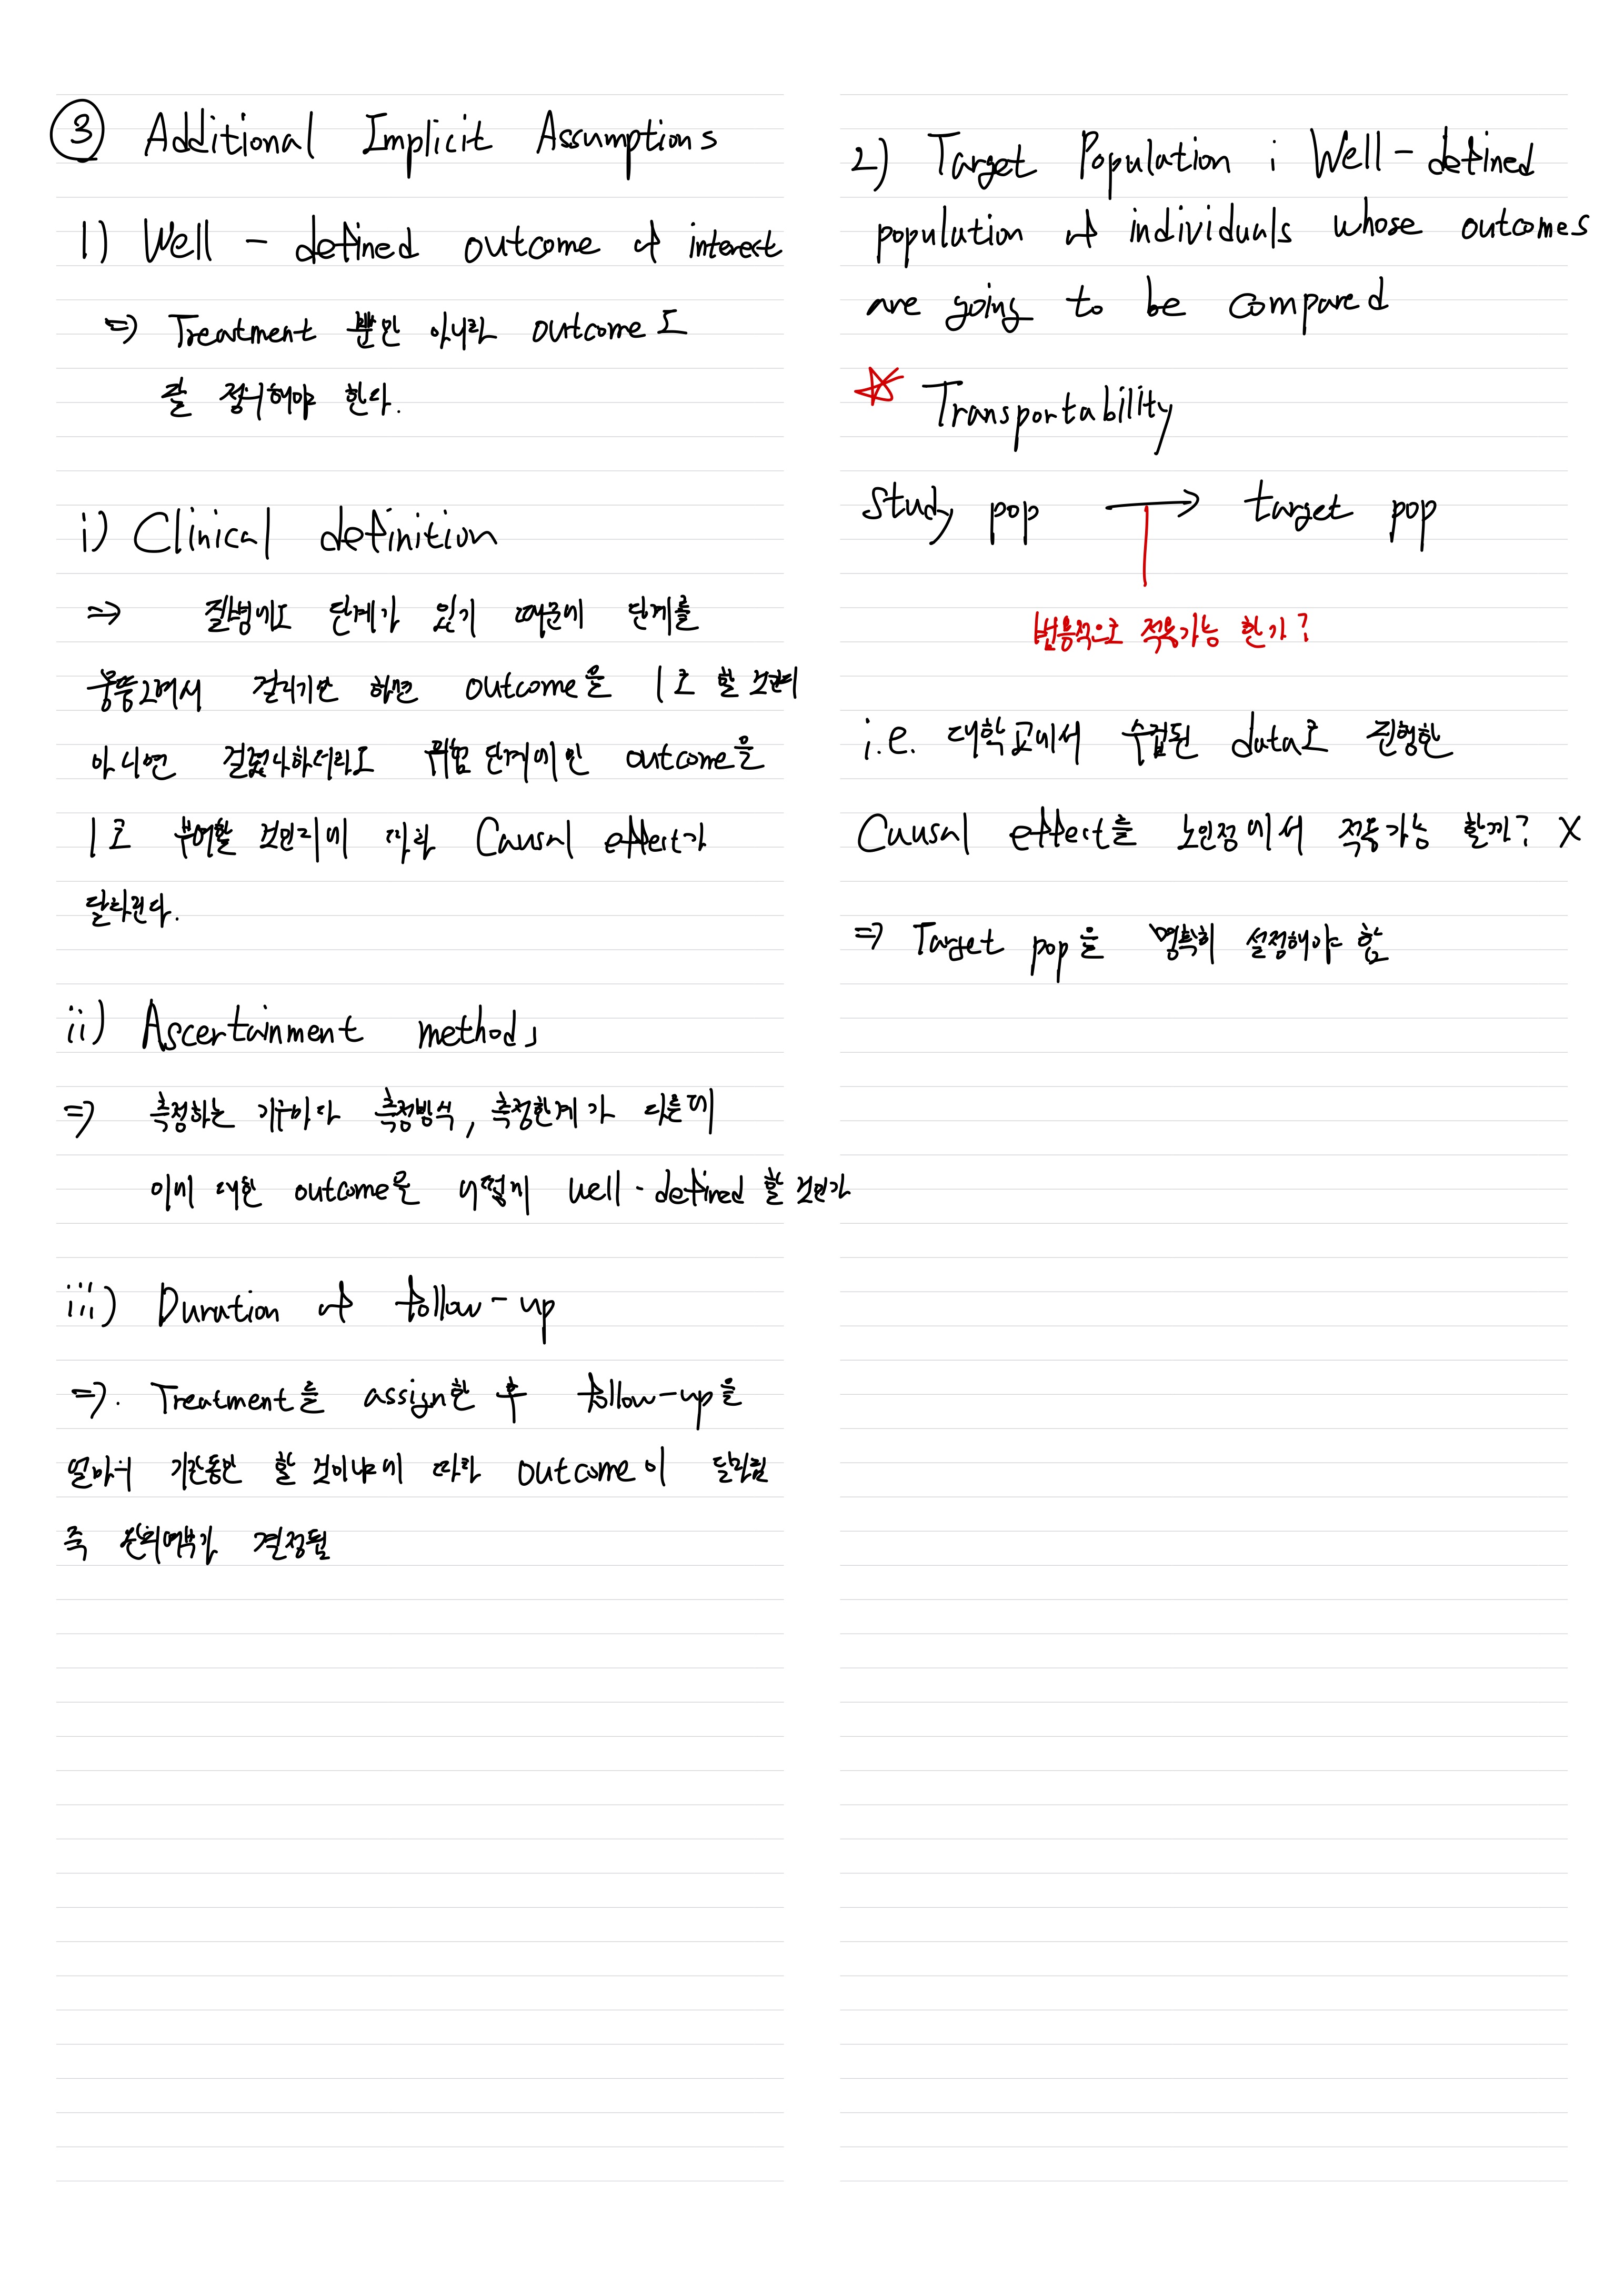 ③ Additional Implicit Assumptions
1) Well - defined outcome of interest
⇒ Treatment 뿐만 아니라 outcome도
잘 정의해야 한다.
i) Clinical definition
⇒ 질병에도 단계가 있기 때문에 단계를
뭉뚱그려서 걸리기만 하면 outcome을 1로 할 것인지
아니면 걸렸다하더라도 위험 단계에만 outcome을
1로 부여할 것인지에 따라 Causal effect가
달라진다.
ii) Ascertainment methods
⇒ 측정하는 기구마다 측정방식, 측정한계가 다른데
이에 대한 outcome을 어떻게 well-defined 할 것인가
iii) Duration of follow-up
⇒. Treatment를 assign한 후 follow-up을
얼마의 기간동안 할 것이냐에 따라 outcome이 달라짐
즉 완치여부가 결정됨
2) Target Population : Well - defined
population of individuals whose outcomes
are going to be compared
☆ Transportability
Study pop → target pop
범용적으로 적용가능 한가?
i.e. 대학교에서 수집된 data로 진행한
Causal effect를 노인정에서 적용가능 할까? X
⇒ Target pop을 명확히 설정해야 함